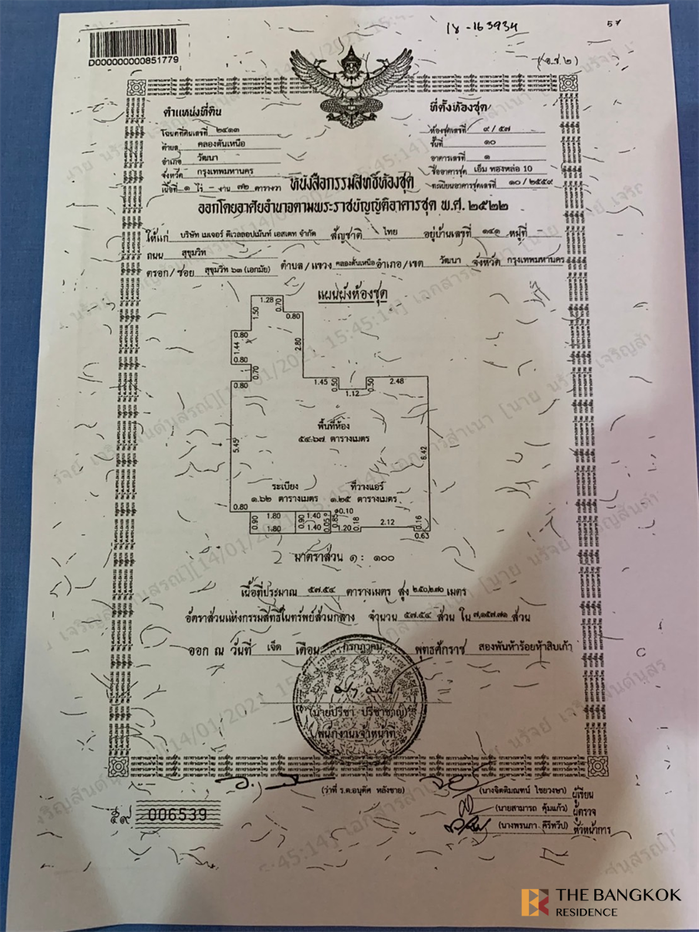 18-163934
57
D000000000851779
(อ.ช.๒)
ตำแหน่งที่ดิน
โฉนดที่ดินเลขที่ ๒๔๑๓
ตำบล คลองตันเหนือ
อำเภอ วัฒนา
จังหวัด กรุงเทพมหานคร
เนื้อที่ ๑ ไร่ - งาน ๗๒ ตารางวา
ที่ตั้งห้องชุด
ห้องชุดเลขที่ ๙ / ๕๗
ชั้นที่ ๑๐
อาคารเลขที่ ๑
ชื่ออาคารชุด เอ็ม ทองหล่อ 10
ทะเบียนอาคารชุดเลขที่ ๑๐ / ๒๕๕๙
หนังสือกรรมสิทธิ์ห้องชุด
ออกโดยอาศัยอำนาจตามพระราชบัญญัติอาคารชุด พ.ศ. ๒๕๒๒
ให้แก่ บริษัท เมเจอร์ ดีเวลลอปเม้นท์ เอสเตท จำกัด สัญชาติ ไทย อยู่บ้านเลขที่ ๑๔๑ หมู่ที่ -
ถนน สุขุมวิท
ตรอก/ซอย สุขุมวิท ๖๓ (เอกมัย) ตำบล/แขวง คลองตันเหนือ อำเภอ/เขต วัฒนา จังหวัด กรุงเทพมหานคร
แผนผังห้องชุด
1.28
1.50
0.70
0.80
0.80
1.44
2.80
0.80
0.70
0.80
1.45
0.50
1.12
0.50
2.48
5.45
6.42
พื้นที่ห้อง
๕๔.๖๗ ตารางเมตร
ระเบียง
๑.๖๒ ตารางเมตร
ที่วางแอร์
๑.๒๕ ตารางเมตร
0.80
0.90
1.80
1.80
0.90
1.40
1.40
0.05
0.85
0.10
1.20
0.18
2.12
0.16
0.63
มาตราส่วน ๑ : ๑๐๐
เนื้อที่ประมาณ ๕๗.๕๔ ตารางเมตร สูง ๒.๕๐,๒.๗๐ เมตร
อัตราส่วนแห่งกรรมสิทธิ์ในทรัพย์ส่วนกลาง จำนวน ๕๗.๕๔ ส่วน ใน ๗,๑๕๗.๗๑ ส่วน
ออก ณ วันที่ เจ็ด เดือน กรกฎาคม พุทธศักราช สองพันห้าร้อยห้าสิบเก้า
(นายปรีชา ปรีชาชาญ)
พนักงานเจ้าหน้าที่
(ว่าที่ ร.ต.อนุศักดิ์ หลังชาย)
(นางจิตติมณฑน์ ไชยวงษา) ผู้เขียน
(นายสามารถ คุ้มแก้ว) ผู้ตรวจ
(นางพรนภา คีรีทวีป) หัวหน้าการ
๕๙ 006539
THE BANGKOK
RESIDENCE